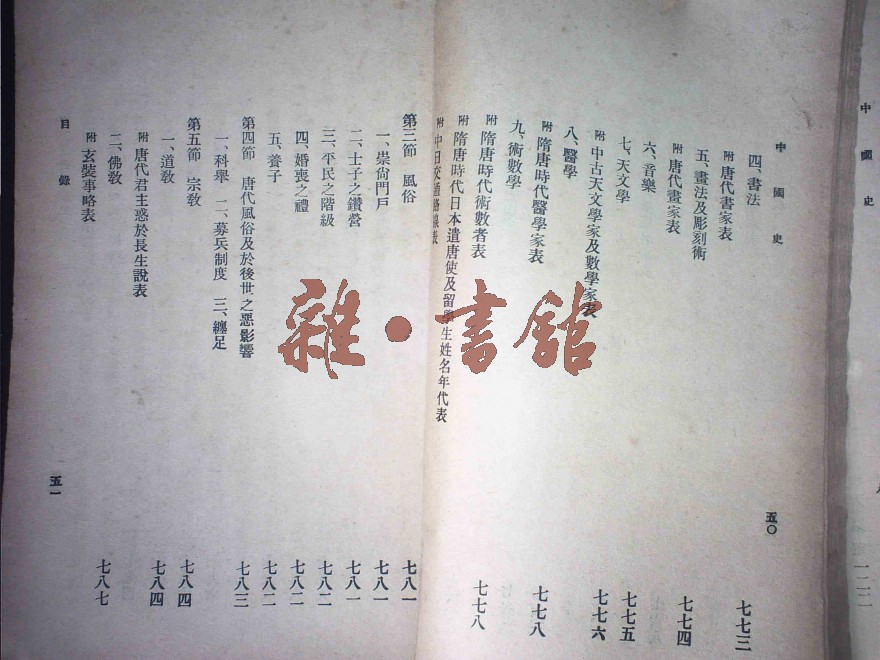 中國史
四、書法 七七三
附 唐代書家表
五、畫法及彫刻術 七七四
附 唐代畫家表
六、音樂
七、天文學 七七五
附 中古天文學家及數學家表 七七六
八、醫學
附 隋唐時代醫學家表 七七八
九、術數學
附 隋唐時代術數者表 七七八
附 隋唐時代日本遣唐使及留學生姓名年代表
附 中日交通路線表
五〇
第三節 風俗 七八一
一、崇尙門戶 七八一
二、士子之鑽營 七八一
三、平民之階級 七八二
四、婚喪之禮 七八二
五、養子 七八二
第四節 唐代風俗及於後世之惡影響 七八三
一、科舉 二、募兵制度 三、纏足
第五節 宗敎 七八四
一、道敎 七八四
附 唐代君主惑於長生說表
二、佛敎
附 玄奘事略表 七八七
目錄
五一
中國史
雜·書館